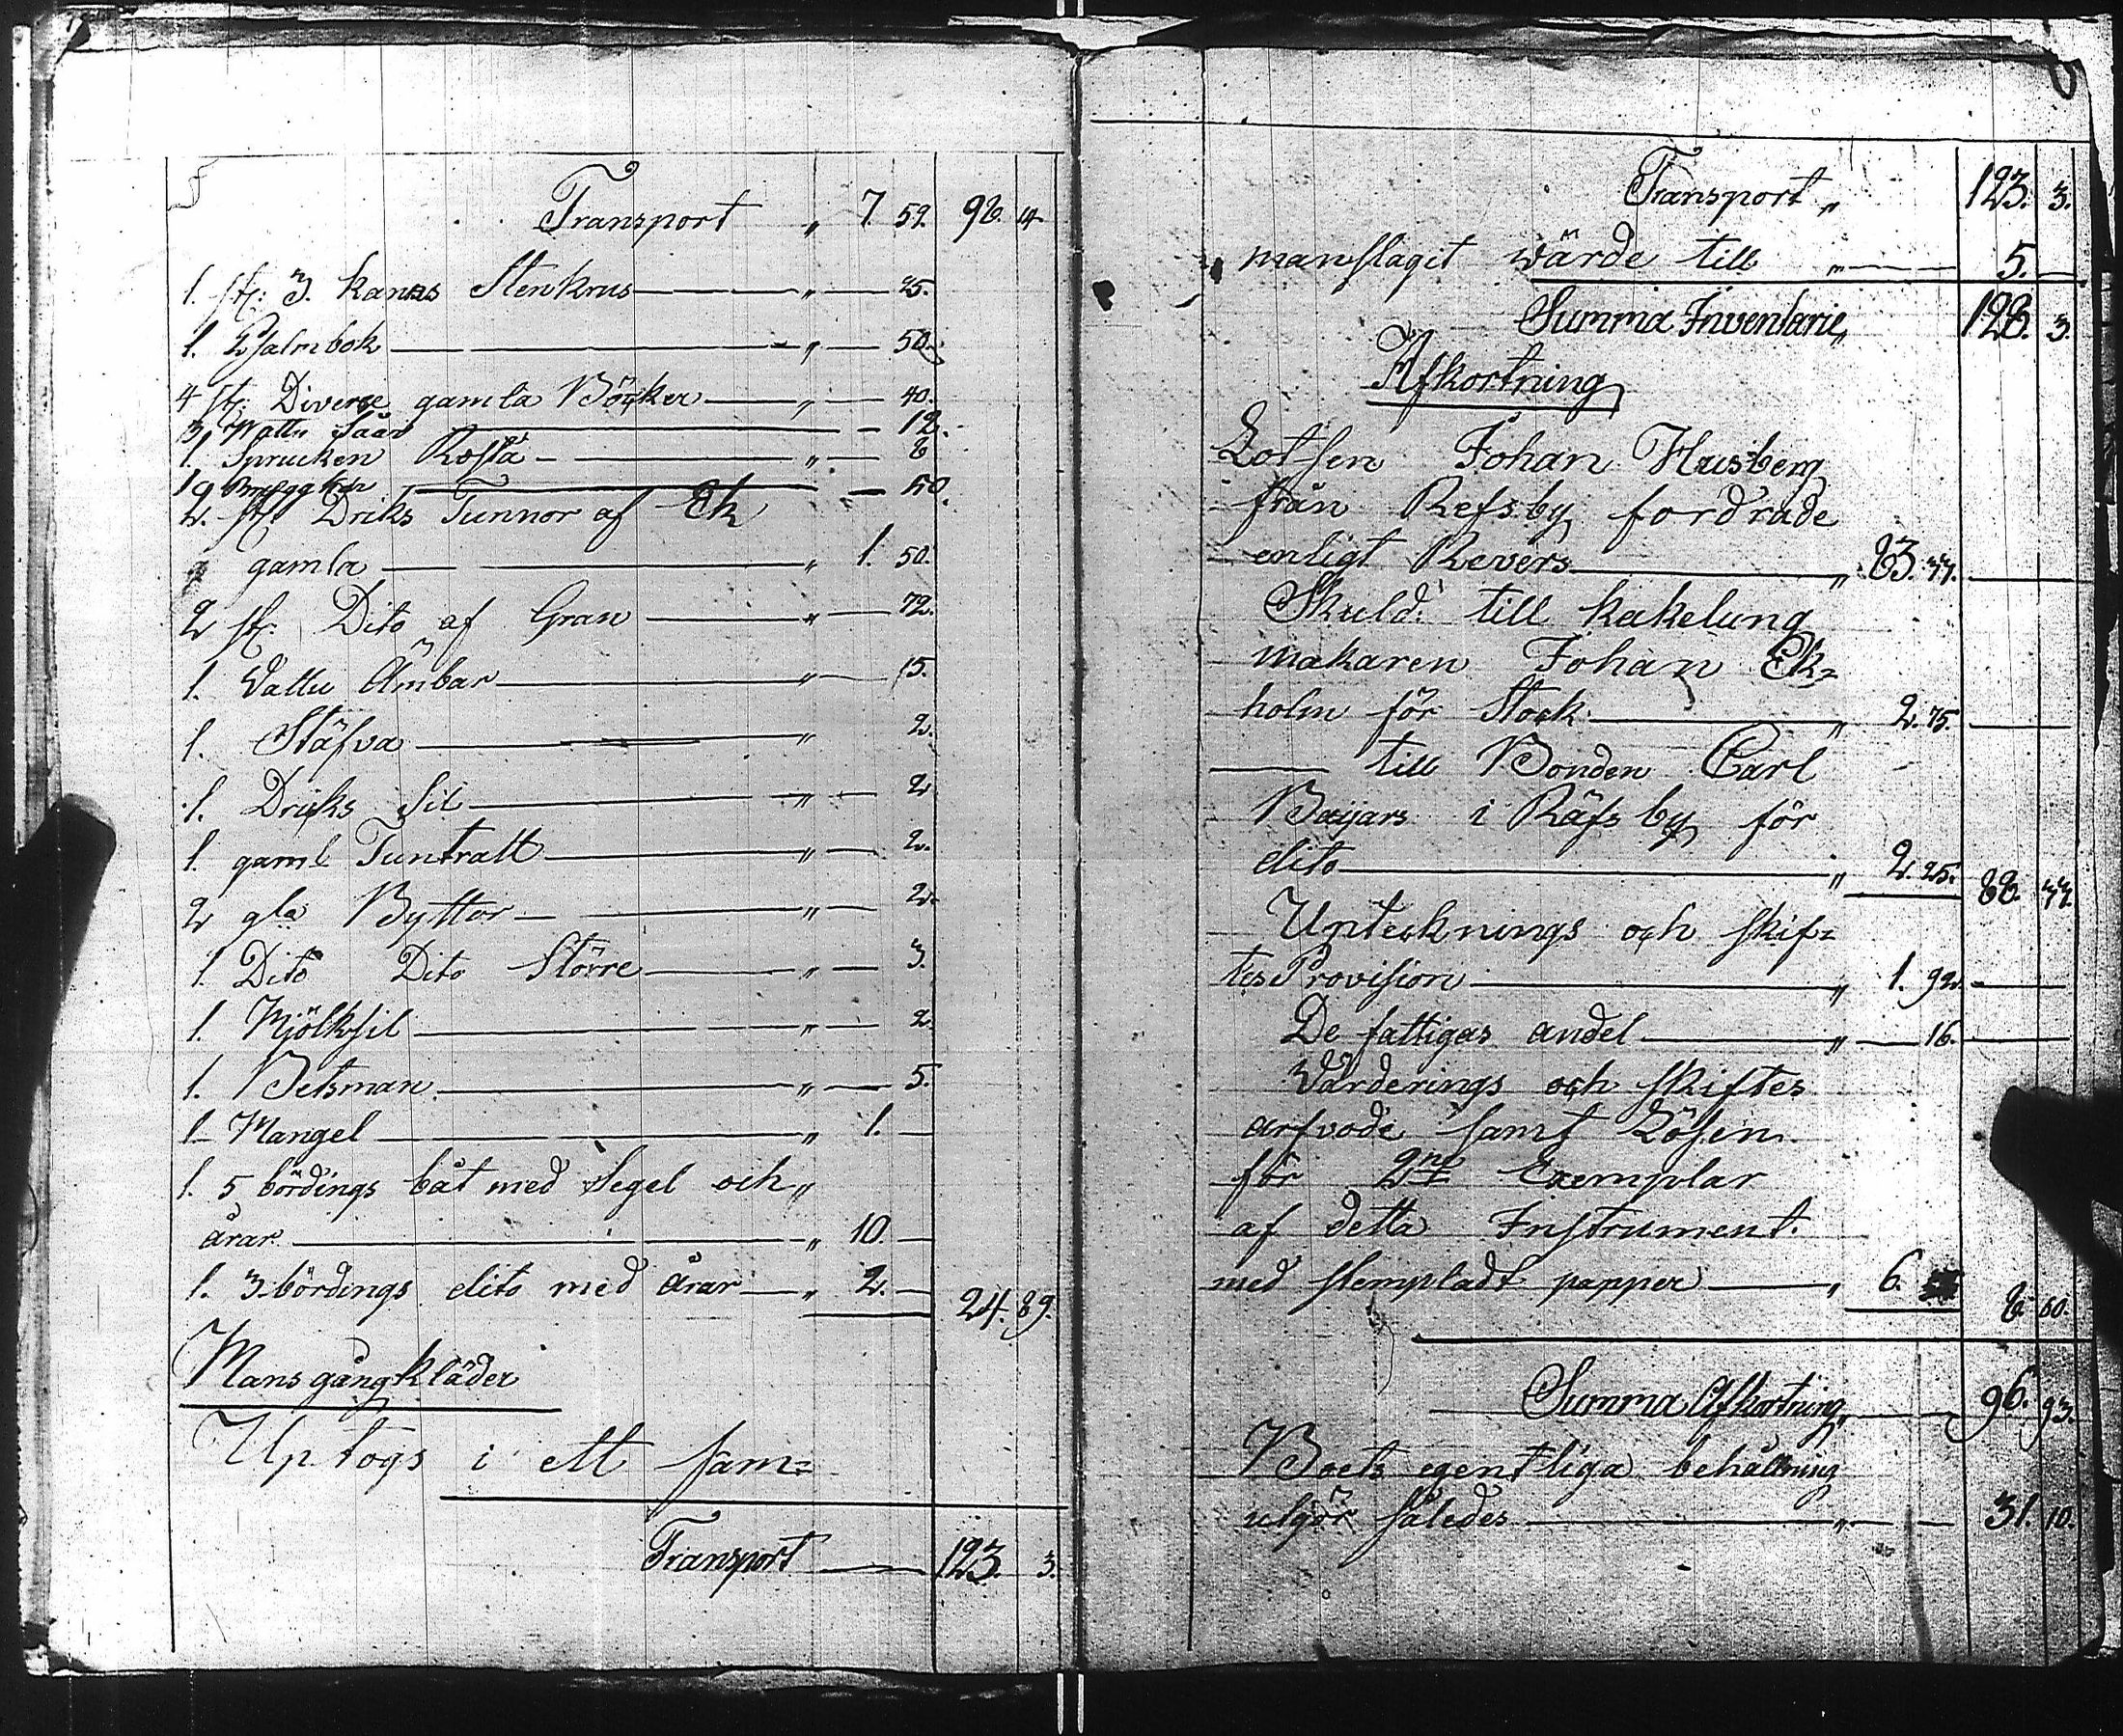 Transport " 7 59. 98. 14.
1. st: 3. kanns Stenkrus " 25.
1. Psalmbok " 50.
4 st: Diverse gamla Böcker " 40.
3, Wattu Såar 12.
1. Sprucken Rosta " 8
1 50.
2. st: Driks Tunnor af Ek
gamla " 1. 50.
2 st: Dito af Gran " 72.
1. Vattu Ämbar " 15.
1. Stäfva " 2.
1. Driks Sil " 2
1. gaml Tuntratt " 2.
2 gla Byttor " 2.
1. Dito Dito Större " 3.
1. Mjölksil " 2.
1. Betsman " 5.
1 Mangel " 1.
1. 5 bördings båt med Segel och "
årar " 10.
1. 3 bördings dito med årar " 2. 24. 89.
Mansgångkläder
Up togs i ett sam=
Transport 123. 3.
Transport " 123. 3.
manslagit wärde till " 5.
Summa Inventarie " 128. 3.
Afkortning
Lotsen Johan Husberg
från Refsby fordrade
enligt Revers " 83. 77.
Skuld till kakelung
makaren Johan Ek=
holm för Stock " 2. 75.
till Bonden Carl
Baijars i Räfsby för
dito " 2. 25. 88. 77.
Uptecknings och skif=
tes Provision " 1. 92.
De fattigas andel " 16.
Värderings och skiftes
arfvode samt Lösen
för 2ne Exemplar
af detta Instrument
med stempladt papper " 6. 8. 60.
Summa Afkortning " 96. 93.
Boets egentliga behållning
utgör således " 31. 10.